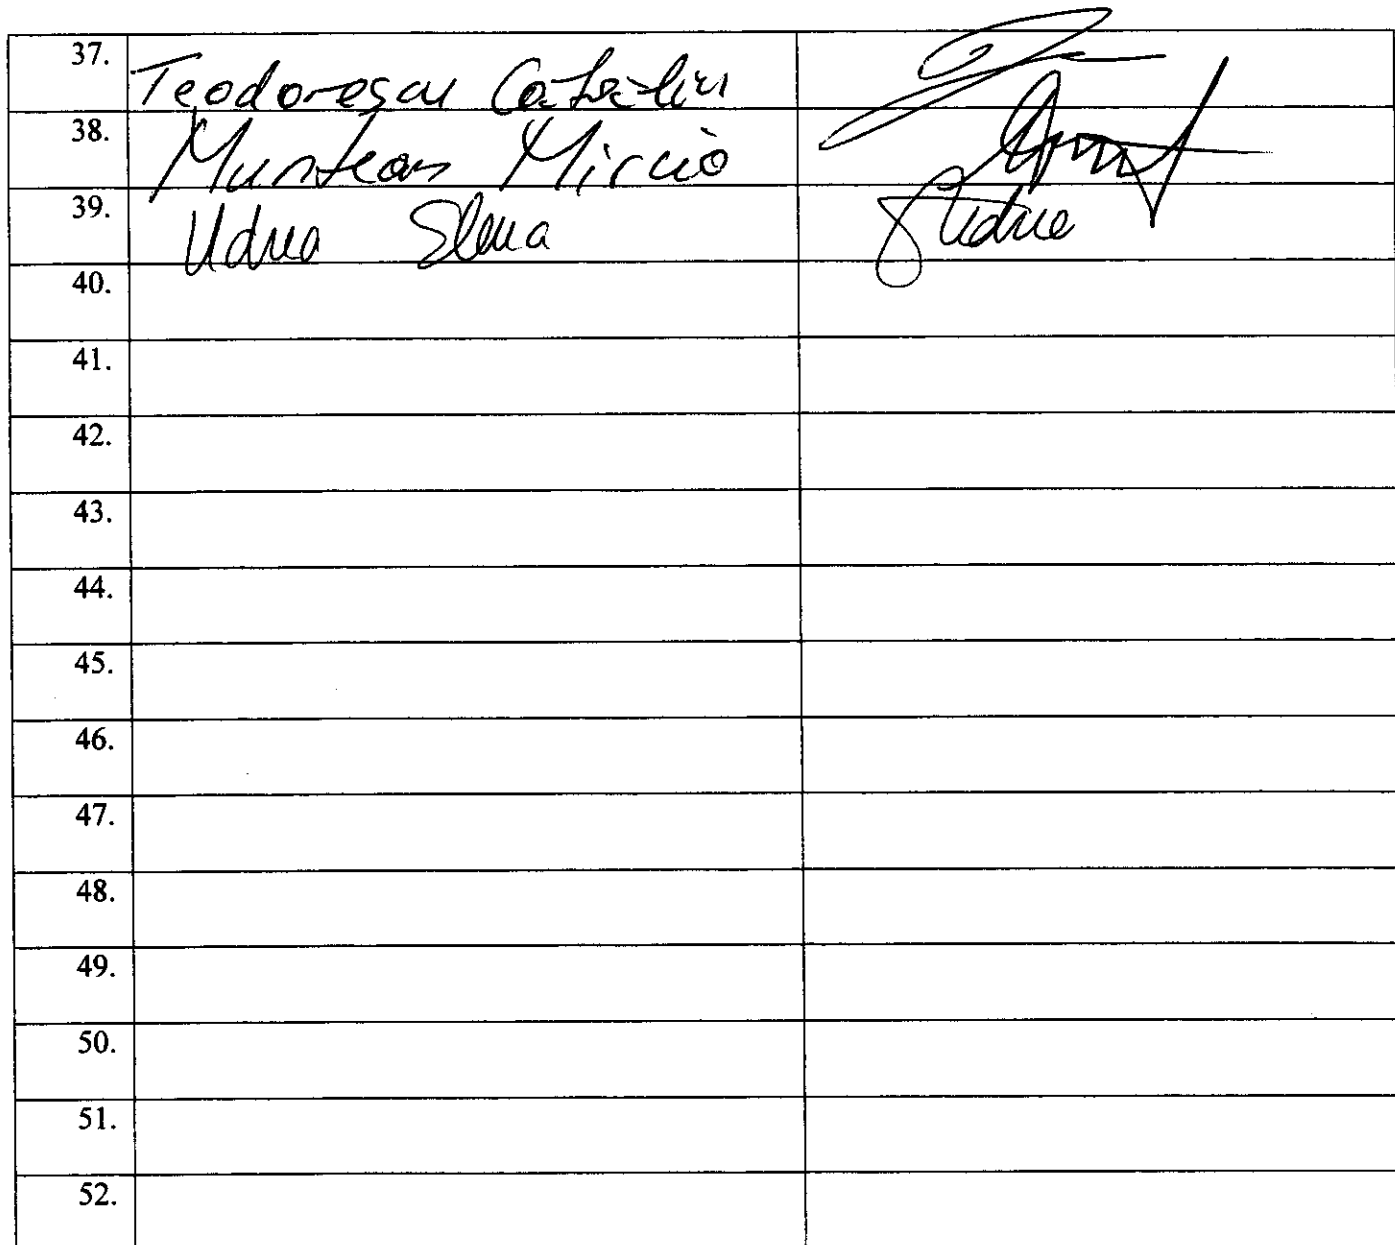 37. Teodorescu Catalin
38. Muntean Mircia
39. Udrea Elena Udrea
40.
41.
42.
43.
44.
45.
46.
47.
48.
49.
50.
51.
52.